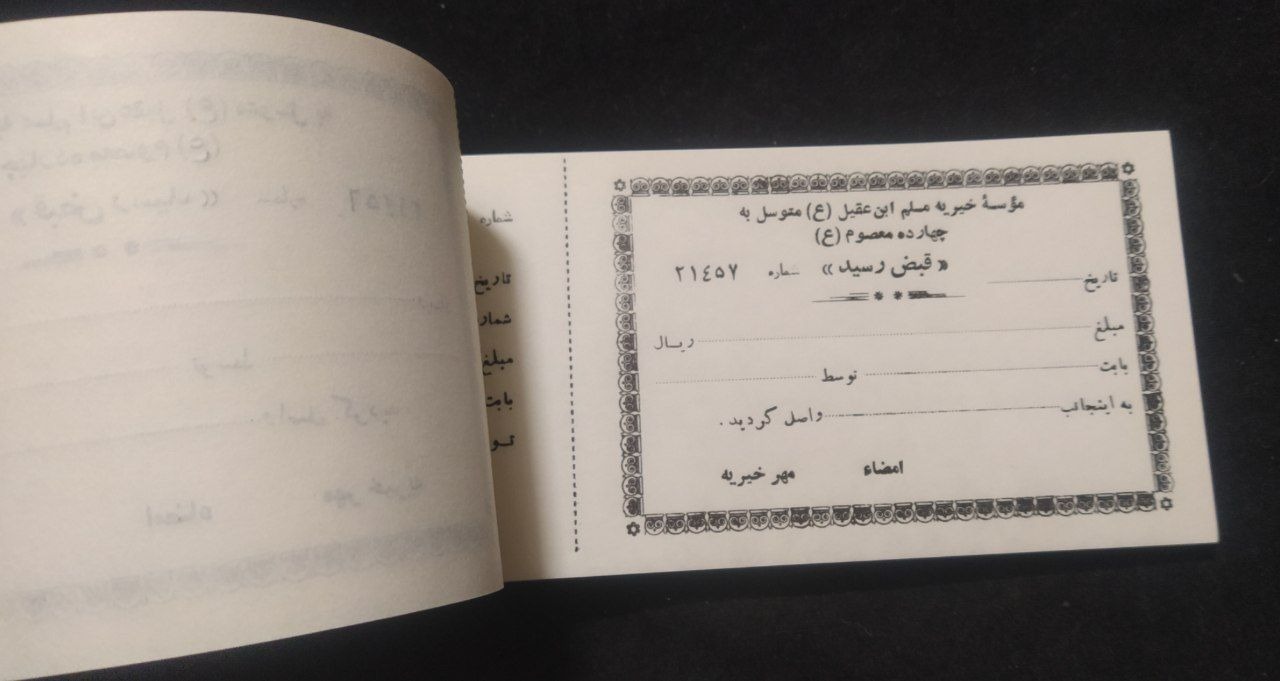 مؤسسهٔ خیریه مسلم ابن عقیل (ع) متوسل به
چهارده معصوم (ع)
« قبض رسید » شماره ۲۱۴۵۷
تاریخ
مبلغ ریال
بابت توسط
به اینجانب واصل گردید .
امضاء مهر خیریه
شماره
تاریخ
شمار
مبلغ
بابت
تو